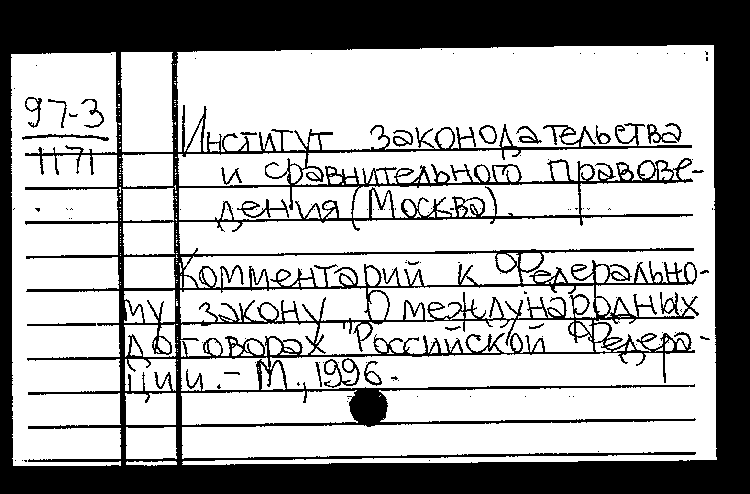 97-3
1171
Институт законодательства
и сравнительного правове-
дения (Москва).
Комментарий к Федерально-
му закону „О международных
договорах Российской Федера-
ции. - М., 1996.